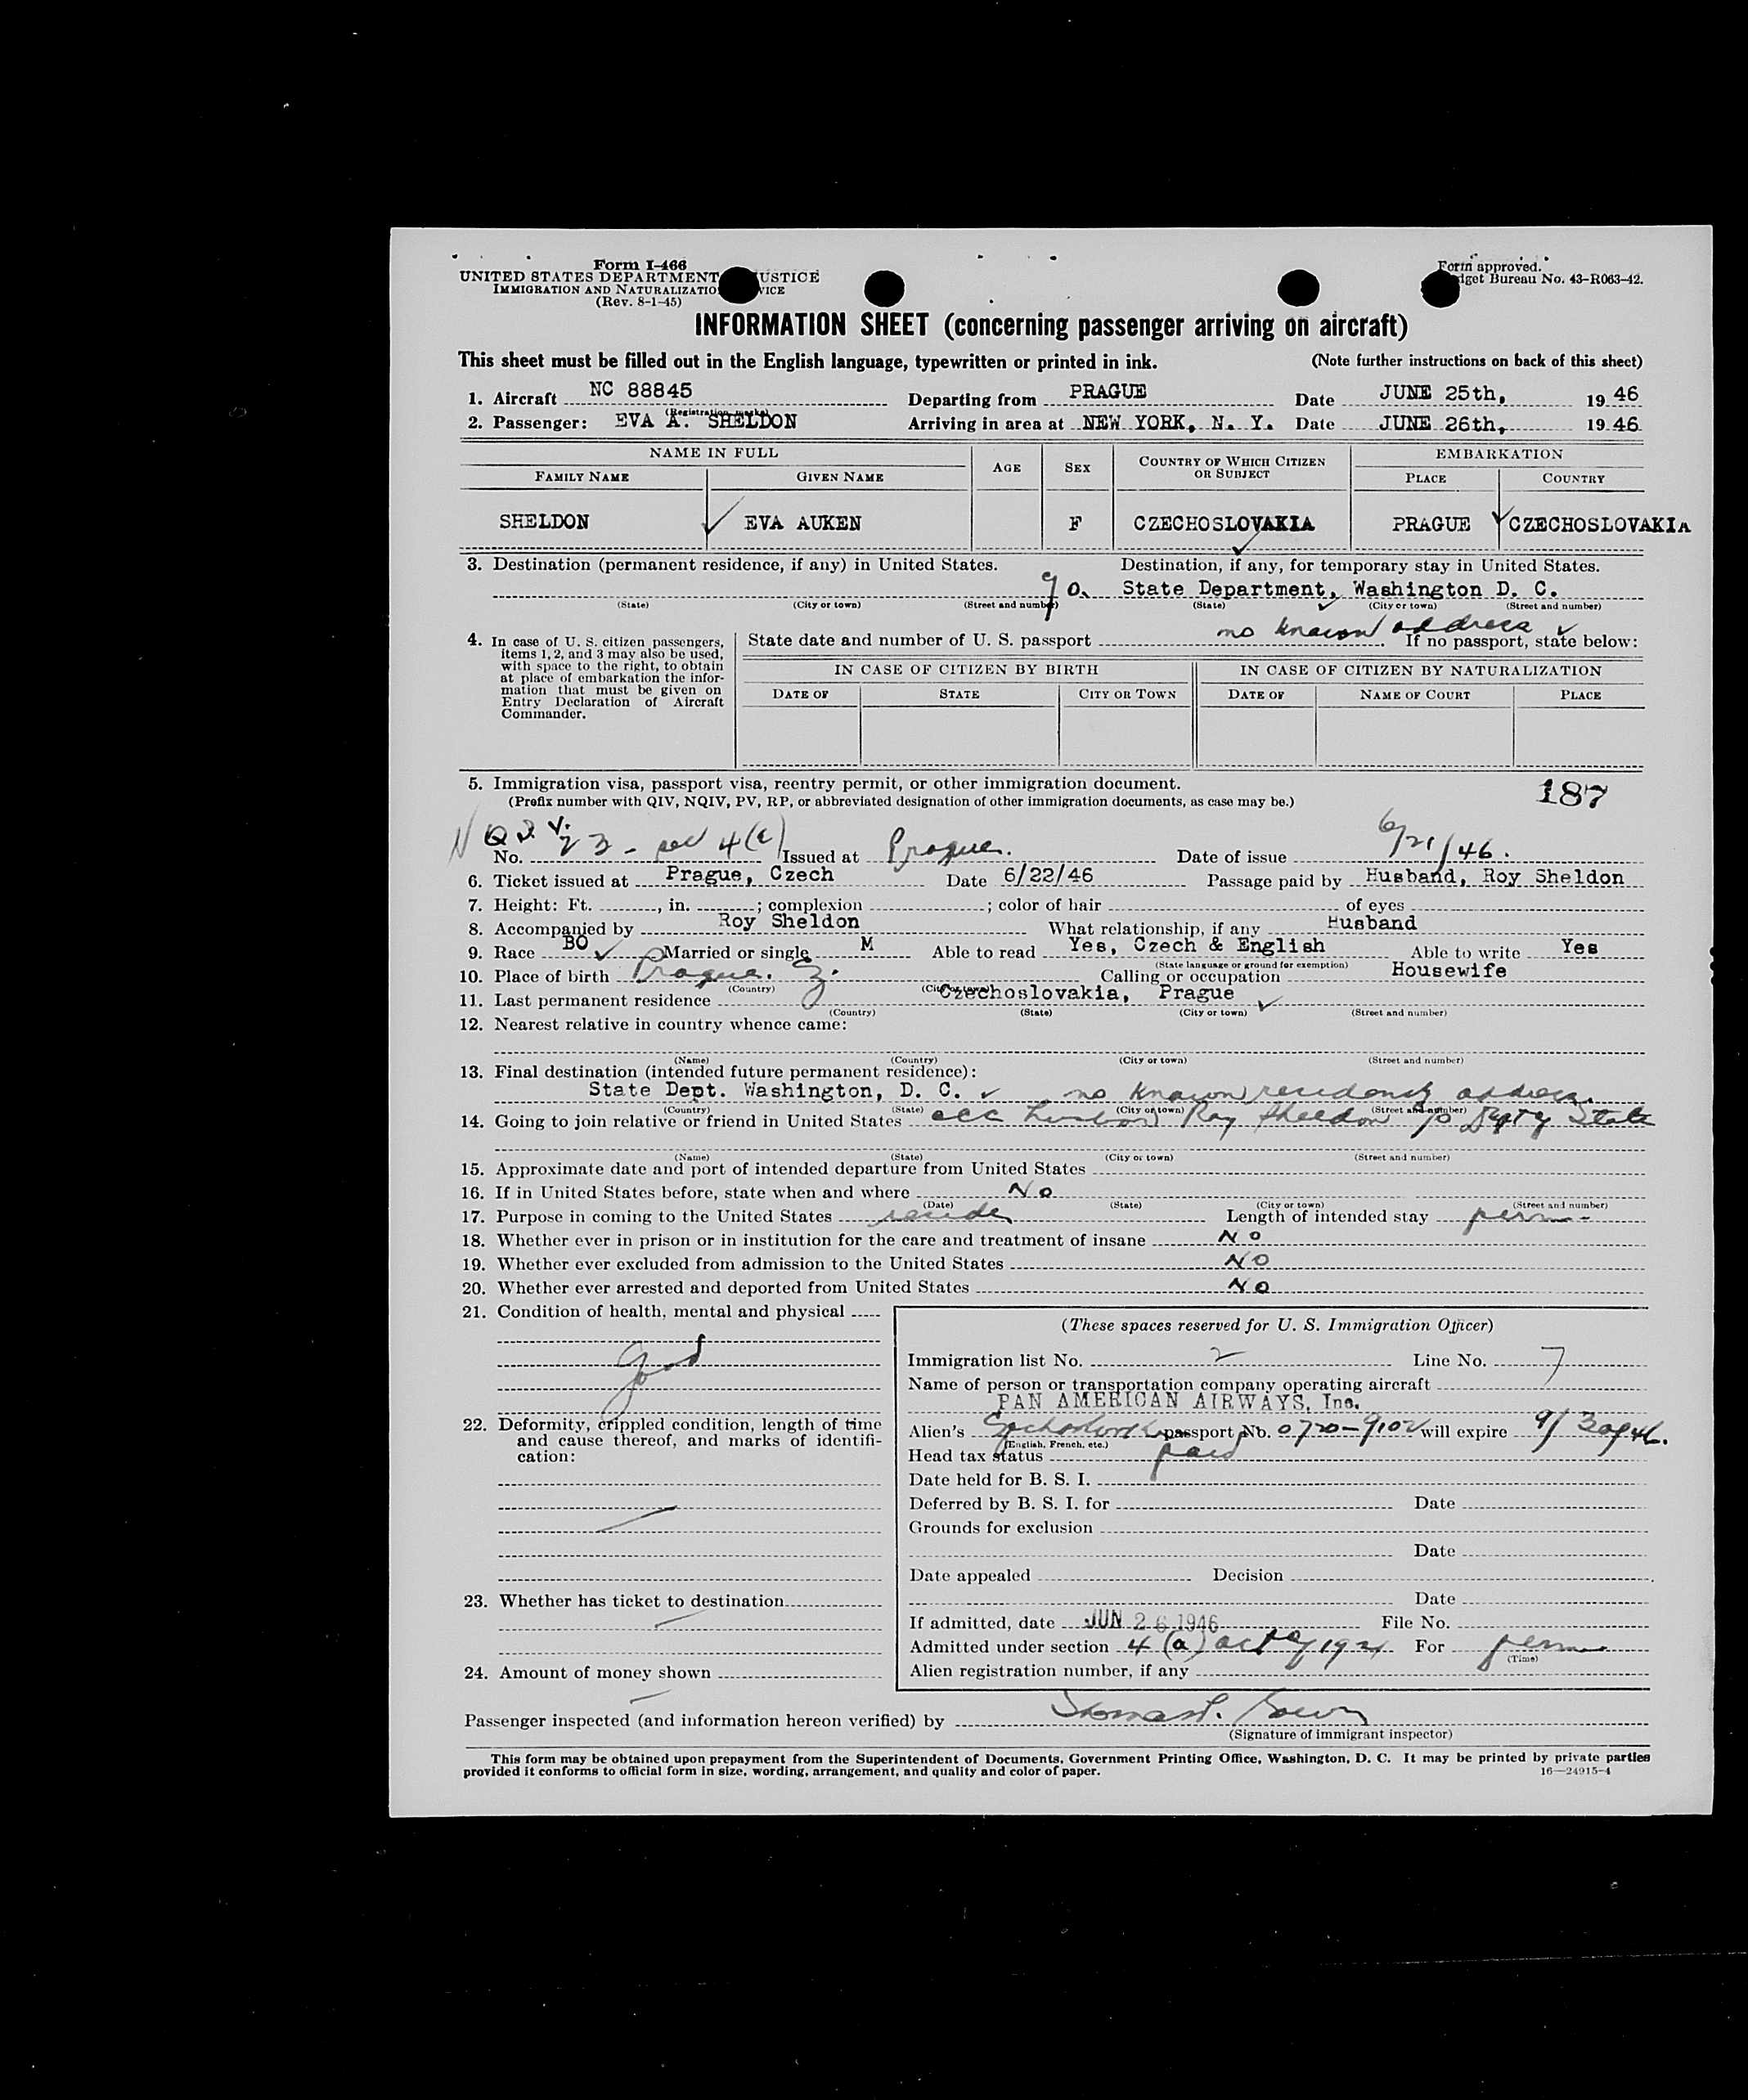 Form I-466
UNITED STATES DEPARTMENT JUSTICE
IMMIGRATION AND NATURALIZATION SERVICE
(Rev. 8-1-45)
Form approved.
Budget Bureau No. 43-R063-42.
INFORMATION SHEET (concerning passenger arriving on aircraft)
This sheet must be filled out in the English language, typewritten or printed in ink. (Note further instructions on back of this sheet)
1. Aircraft NC 88845 Departing from PRAGUE Date JUNE 25th, 1946
(Registration marks)
2. Passenger: EVA A. SHELDON Arriving in area at NEW YORK, N. Y. Date JUNE 26th, 1946
NAME IN FULL AGE SEX COUNTRY OF WHICH CITIZEN OR SUBJECT EMBARKATION
FAMILY NAME GIVEN NAME PLACE COUNTRY
SHELDON EVA AUKEN F CZECHOSLOVAKIA PRAGUE CZECHOSLOVAKIA
3. Destination (permanent residence, if any) in United States. Destination, if any, for temporary stay in United States.
State Department, Washington D. C.
(State) (City or town) (Street and number) (State) (City or town) (Street and number)
no known address
4. In case of U. S. citizen passengers, items 1, 2, and 3 may also be used, with space to the right, to obtain at place of embarkation the information that must be given on Entry Declaration of Aircraft Commander.
State date and number of U. S. passport If no passport, state below:
IN CASE OF CITIZEN BY BIRTH IN CASE OF CITIZEN BY NATURALIZATION
DATE OF STATE CITY OR TOWN DATE OF NAME OF COURT PLACE
5. Immigration visa, passport visa, reentry permit, or other immigration document.
(Prefix number with QIV, NQIV, PV, RP, or abbreviated designation of other immigration documents, as case may be.)
187
No. 23 - 4(a) Issued at Prague. Date of issue 6/21/46.
6. Ticket issued at Prague, Czech Date 6/22/46 Passage paid by Husband, Roy Sheldon
7. Height: Ft. , in. ; complexion ; color of hair of eyes
8. Accompanied by Roy Sheldon What relationship, if any Husband
9. Race BO Married or single M Able to read Yes, Czech & English Able to write Yes
(State language or ground for exemption)
10. Place of birth Prague. Calling or occupation Housewife
(Country) (City or town)
11. Last permanent residence Czechoslovakia, Prague
(Country) (State) (City or town) (Street and number)
12. Nearest relative in country whence came:
(Name) (Country) (City or town) (Street and number)
13. Final destination (intended future permanent residence):
State Dept. Washington, D. C. no known residency address.
(Country) (State) (City or town) (Street and number)
14. Going to join relative or friend in United States Roy Sheldon State
(Name) (State) (City or town) (Street and number)
15. Approximate date and port of intended departure from United States
16. If in United States before, state when and where No
(Date) (State) (City or town) (Street and number)
17. Purpose in coming to the United States reside Length of intended stay perm-
18. Whether ever in prison or in institution for the care and treatment of insane NO
19. Whether ever excluded from admission to the United States NO
20. Whether ever arrested and deported from United States NO
21. Condition of health, mental and physical
good
22. Deformity, crippled condition, length of time and cause thereof, and marks of identification:
23. Whether has ticket to destination
24. Amount of money shown
(These spaces reserved for U. S. Immigration Officer)
Immigration list No. 2 Line No. 7
Name of person or transportation company operating aircraft
PAN AMERICAN AIRWAYS, Inc.
Alien's passport No. will expire 9/30/46.
(English, French, etc.)
Head tax status paid
Date held for B. S. I.
Deferred by B. S. I. for Date
Grounds for exclusion
Date
Date appealed Decision
Date
If admitted, date JUN 26 1946 File No.
Admitted under section 4 (a) act of 1924 For perm
(Time)
Alien registration number, if any
Passenger inspected (and information hereon verified) by
(Signature of immigrant inspector)
This form may be obtained upon prepayment from the Superintendent of Documents, Government Printing Office, Washington, D. C. It may be printed by private parties
provided it conforms to official form in size, wording, arrangement, and quality and color of paper. 16—24915-4